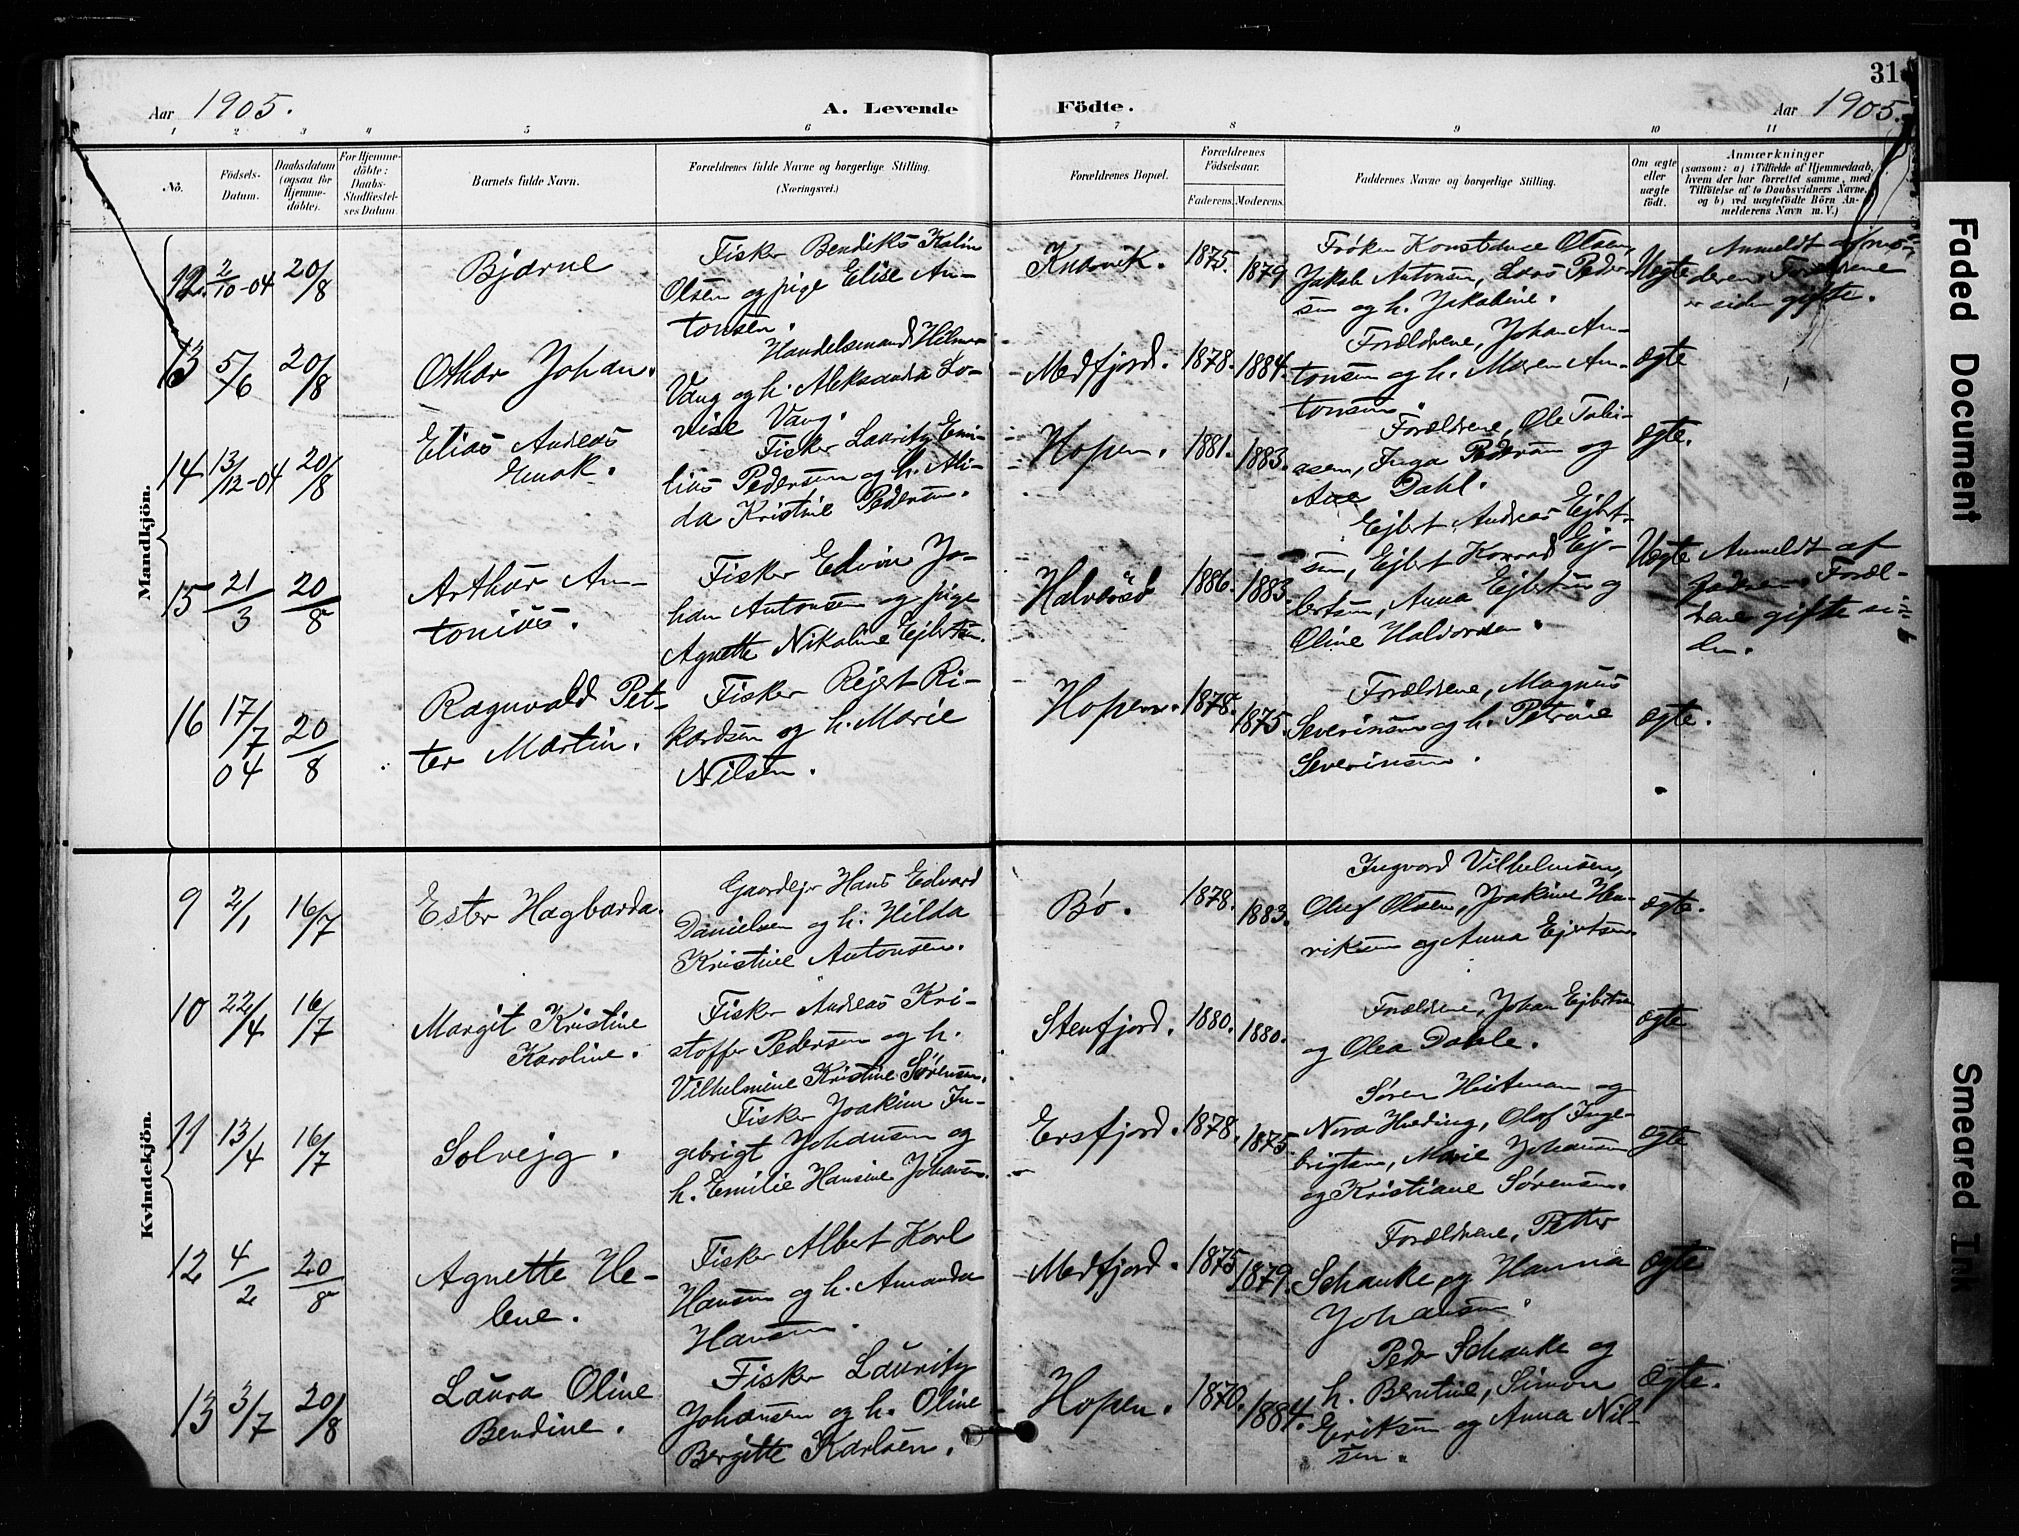 31
Aar 1905.
A. Levende Födte.
Aar 1905.
1 2 3 4 5 6 7 8 9 10 11
No.
Födsels-
Datum.
Daabsdatum
(ogsaa for
Hjemme-
döbte).
For Hjemme-
döbte:
Daabs-
Stadfæstel-
ses Datum.
Barnets fulde Navn.
Forældrenes fulde Navne og borgerlige Stilling.
(Næringsvei.)
Forældrenes Bopæl.
Forældrenes
Födselsaar.
Faderens. Moderens.
Faddernes Navne og borgerlige Stilling.
Om ægte
eller
uægte
født.
Anmærkninger
(saasom: a) i Tilfælde af Hjemmedaab,
hvem der har forrettet samme, med
Tilföielse af to Daabsvidners Navne,
og b) ved uægtefödte Börn An-
melderens Navn m. V.)
Mandkjön.
12. 2/10-04 20/8
Bjarne
Fisker Bendiks Kalin
Olsen og pige Elise An-
tonsen.
Knarvik. 1875. 1879
Frøken Konstance Olsen,
Jakob Antonsen, Lars Peder-
sen og h. Jakobine.
Uegte
Anmeldt af mo-
deren. Forældrene
er siden gifte.
13 5/6 20/8
Othar Johan.
Handelsmand Hilmar
Vang og h. Aleksandra Lo-
vise Vang.
Medfjord. 1878. 1884.
Forældrene, Johan An-
tonsen og h. Maren An-
tonsen.
ægte
14 13/12-04 20/8
Elias Andreas
Enok.
Fisker Lauritz Emi-
lius Pedersen og h. Ali-
da Kristine Pedersen.
Hopen. 1881. 1883.
Forældrene, Ole Tobi-
asen, Inga Pedersen og
Ane Dahl.
ægte.
15 21/3 20/8
Arthur An-
tonius.
Fisker Edvin Jo-
han Antonsen og pige
Agnette Nikoline Ejlertsen.
Halvarsö 1886. 1883.
Ejlert Andreas Ejlert-
sen, Ejlert Konrad Ej-
lertsen, Anna Ejlertsen og
Oline Halvorsen.
Uegte
Anmeldt af
faderen. Foræl-
drene gifte si-
den.
16 17/7 04 20/8
Ragnvald Pet-
ter Martin.
Fisker Rejert Ri-
kardsen og h. Marie
Nilsen.
Hopen. 1878. 1875.
Forældrene, Magnus
Severinsen og h. Petrine
Severinsen.
ægte.
Kvindekjön.
9 2/1 16/7
Ester Hagbarda.
Gaardejer Hans Edvard
Danielsen og h. Hilda
Kristine Antonsen.
Bö. 1878. 1883.
Ingvard Vilhelmsen,
Oluf Olsen, Joakine Hen-
riksen og Anna Ejertsen
ægte.
10 22/4 16/7
Margit Kristine
Karoline.
Fisker Andreas Kri-
stoffer Pedersen og h.
Vilhelmine Kristine Sørensen.
Stenfjord. 1880. 1880.
Forældrene, Johan Ejlertsen
og Olea Dahle.
ægte
11 13/4 16/7
Solvejg.
Fisker Joakim In-
gebrigt Johansen og
h. Emilie Hansine Johansen.
Ersfjord. 1878. 1875.
Søren Heitman og
Nora Hveding, Olof Inge-
brigtsen, Marie Johansen
og Kristiane Sørensen.
ægte
12 4/2 20/8
Agnette He-
lene.
Fisker Albert Karl
Hansen og h. Amanda
Hansen.
Medfjord. 1875 1879.
Forældrene, Petter
Schanke og Hanna
Johansen.
ægte
13 3/7 20/8
Laura Oline
Bendine.
Fisker Lauritz
Johansen og h. Oline
Bergitte Karlsen.
Hopen. 1870. 1884.
Peder Schanke og
h. Berntine, Simon
Eriksen og Anna Nil-
sen.
ægte.
Faded Document
Smeared Ink